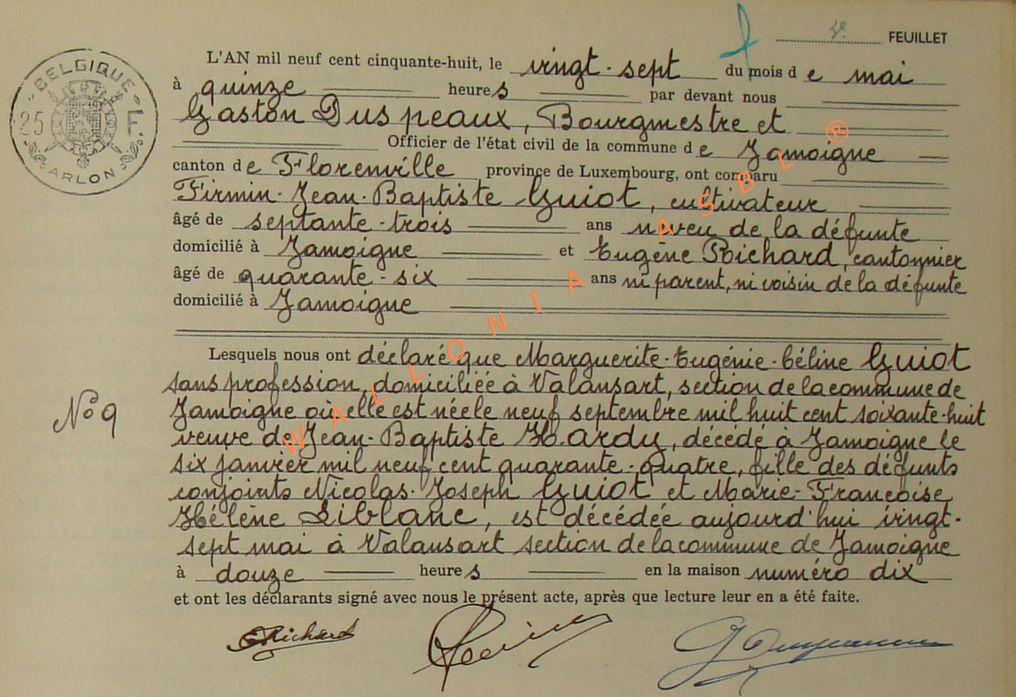 FEUILLET
BELGIQUE
25 F.
ARLON
L'AN mil neuf cent cinquante-huit, le vingt-sept du mois de mai
à quinze heures par devant nous
Gaston Duspeaux, Bourgmestre et
Officier de l'état civil de la commune de Jamoigne
canton de Florenville province de Luxembourg, ont comparu
Firmin-Jean-Baptiste Guiot, cultivateur
âgé de septante-trois ans neveu de la défunte
domicilié à Jamoigne et Eugène Richard, cantonnier
âgé de quarante-six ans ni parent, ni voisin de la défunte
domicilié à Jamoigne
Lesquels nous ont déclaré que Marguerite-Eugénie-Céline Guiot
sans profession, domiciliée à Valansart, section de la commune de
No 9
Jamoigne où elle est née le neuf septembre mil huit cent soixante-huit
veuve de Jean-Baptiste Hardy, décédé à Jamoigne le
six janvier mil neuf cent quarante-quatre, fille des défunts
conjoints Nicolas-Joseph Guiot et Marie-Françoise
Hélène Liblanc, est décédée aujourd'hui vingt-
sept mai à Valansart section de la commune de Jamoigne
à douze heures en la maison numéro dix
et ont les déclarants signé avec nous le présent acte, après que lecture leur en a été faite.
E Richard
WALLONIA ASBL ®